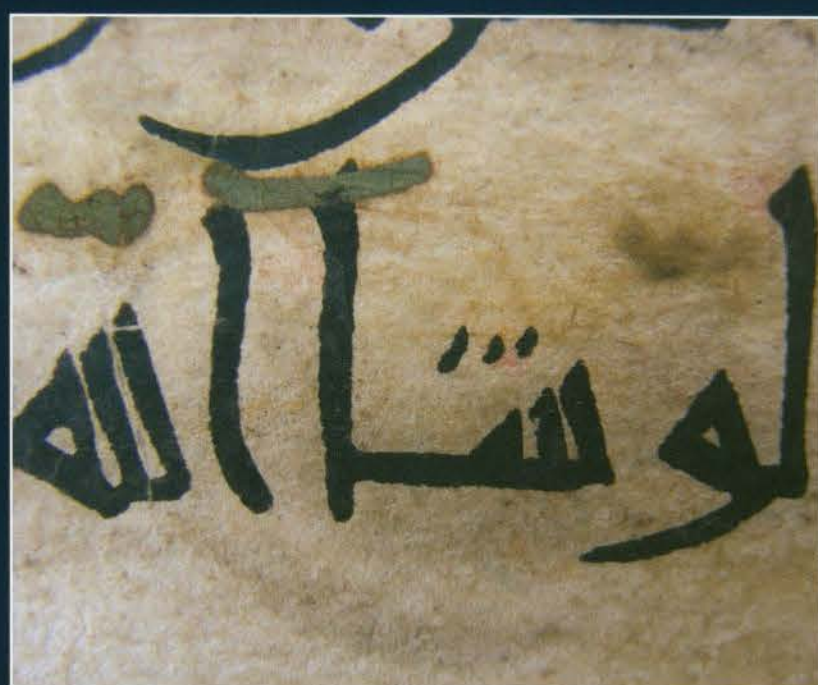 لو شا الله